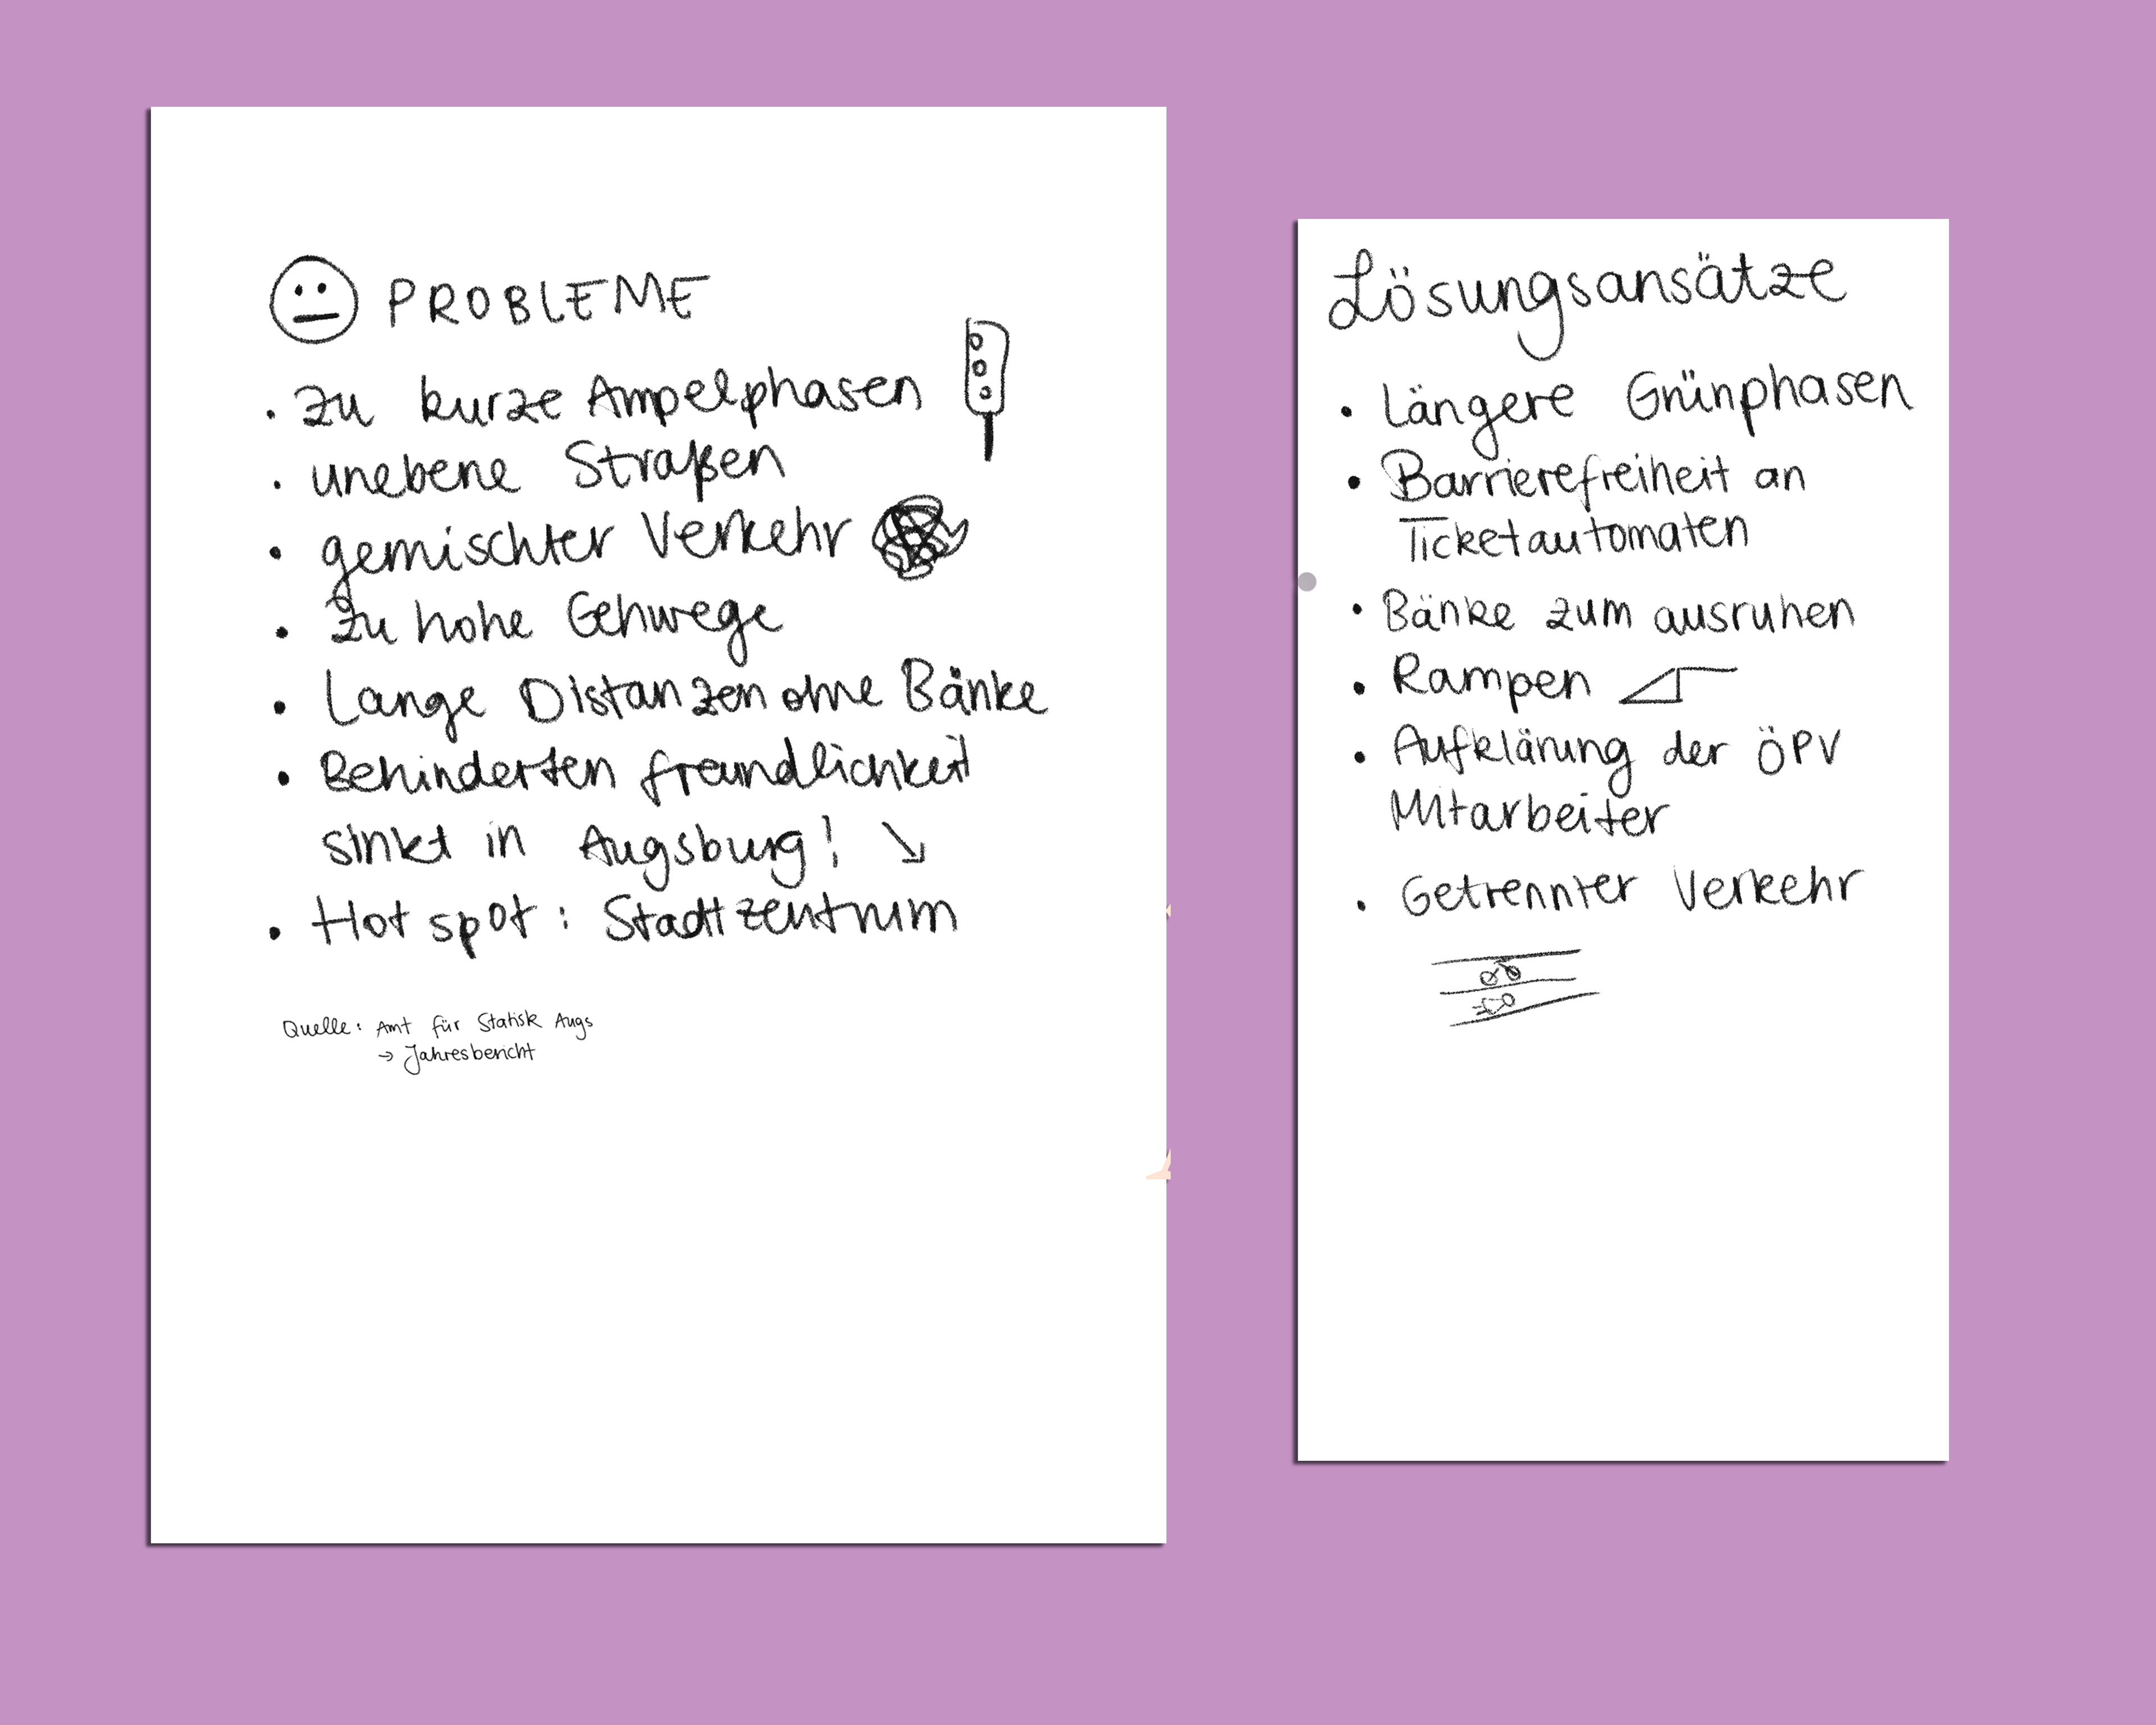 PROBLEME
• zu kurze Ampelphasen
• unebene Straßen
• gemischter Verkehr
• zu hohe Gehwege
• Lange Distanzen ohne Bänke
• Behinderten freundlichkeit
sinkt in Augsburg! ↘
• Hot spot: Stadtzentrum
Quelle: Amt für Statisk Augs
→ Jahresbericht
Lösungsansätze
• Längere Grünphasen
• Barrierefreiheit an
Ticketautomaten
• Bänke zum ausruhen
• Rampen
• Aufklärung der ÖPV
Mitarbeiter
• Getrennter Verkehr